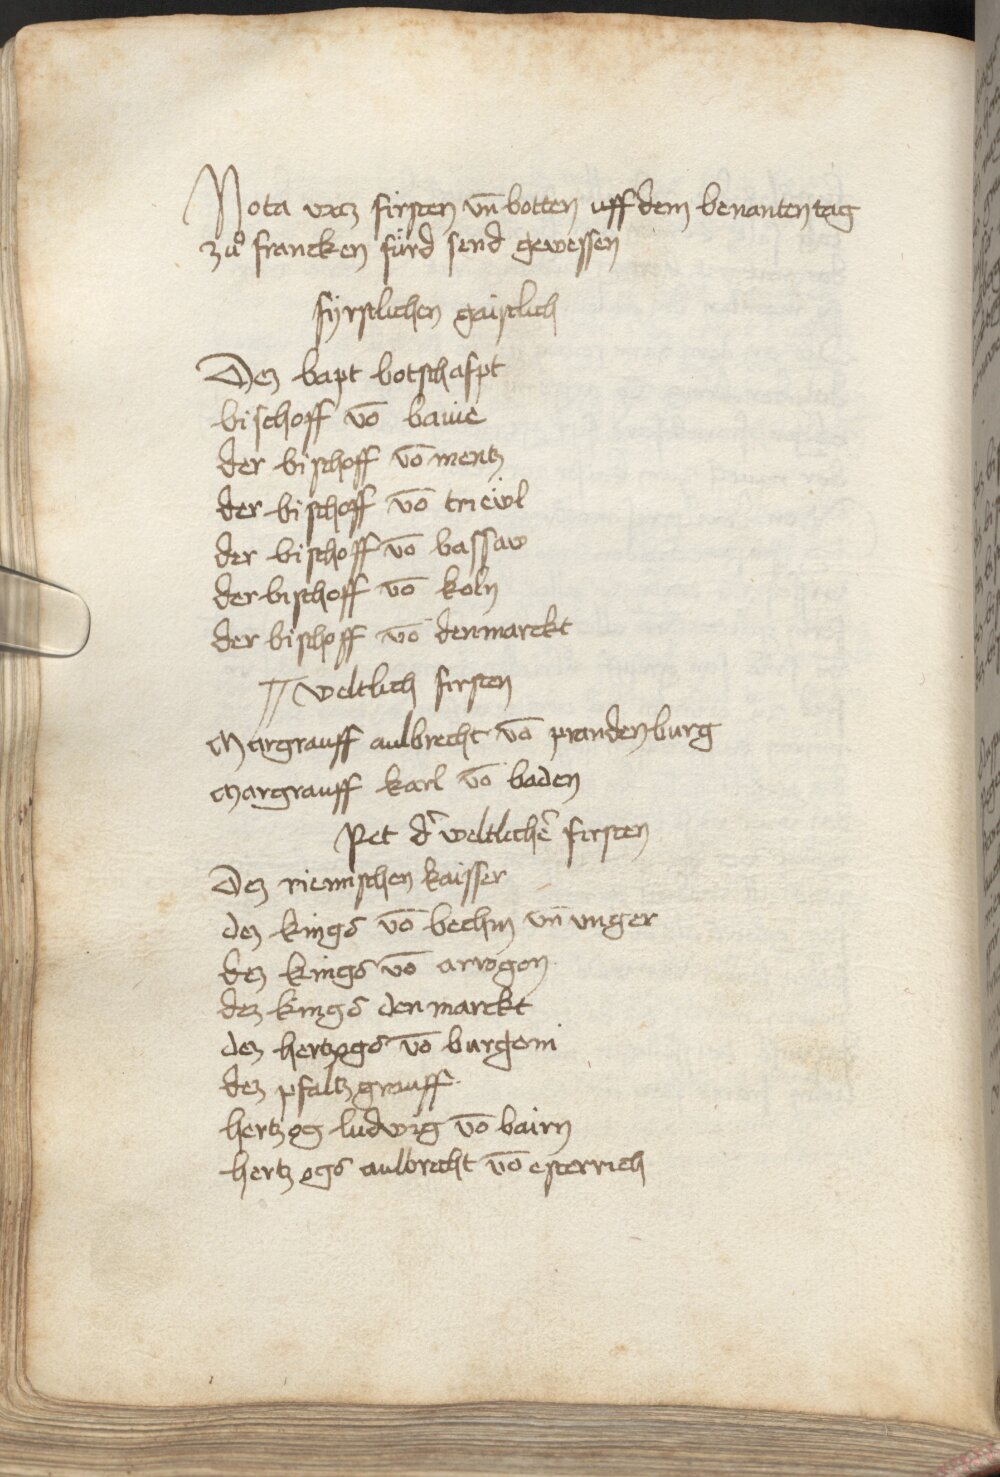 Nota waz firsten vn̄ botten uff dem benanten tag
zuͦ francken fürd send gewessen
fÿrstlichen gaistlich
Dez bapt botschafpt
bischoff vō
der bischoff vō mentz
der bischoff vō trieẅl
der bischoff vō bassaw
der bischoff vō koln
der bischoff vō denmarckt
weltlich firsten
Margrauff aulbrecht vō prandenburg
Margrauff karl vō baden
Ret d' weltlichē firsten
Dez riemischen kaisser
dez kings vō bechm vn̄ vnger
dez kings vō arrogon
dez kings denmarckt
dez hertzogs vō burgoni
dez pfaltzgrauff
hertzog ludwig vō bairn
hertzogs aulbrecht vō esterrich